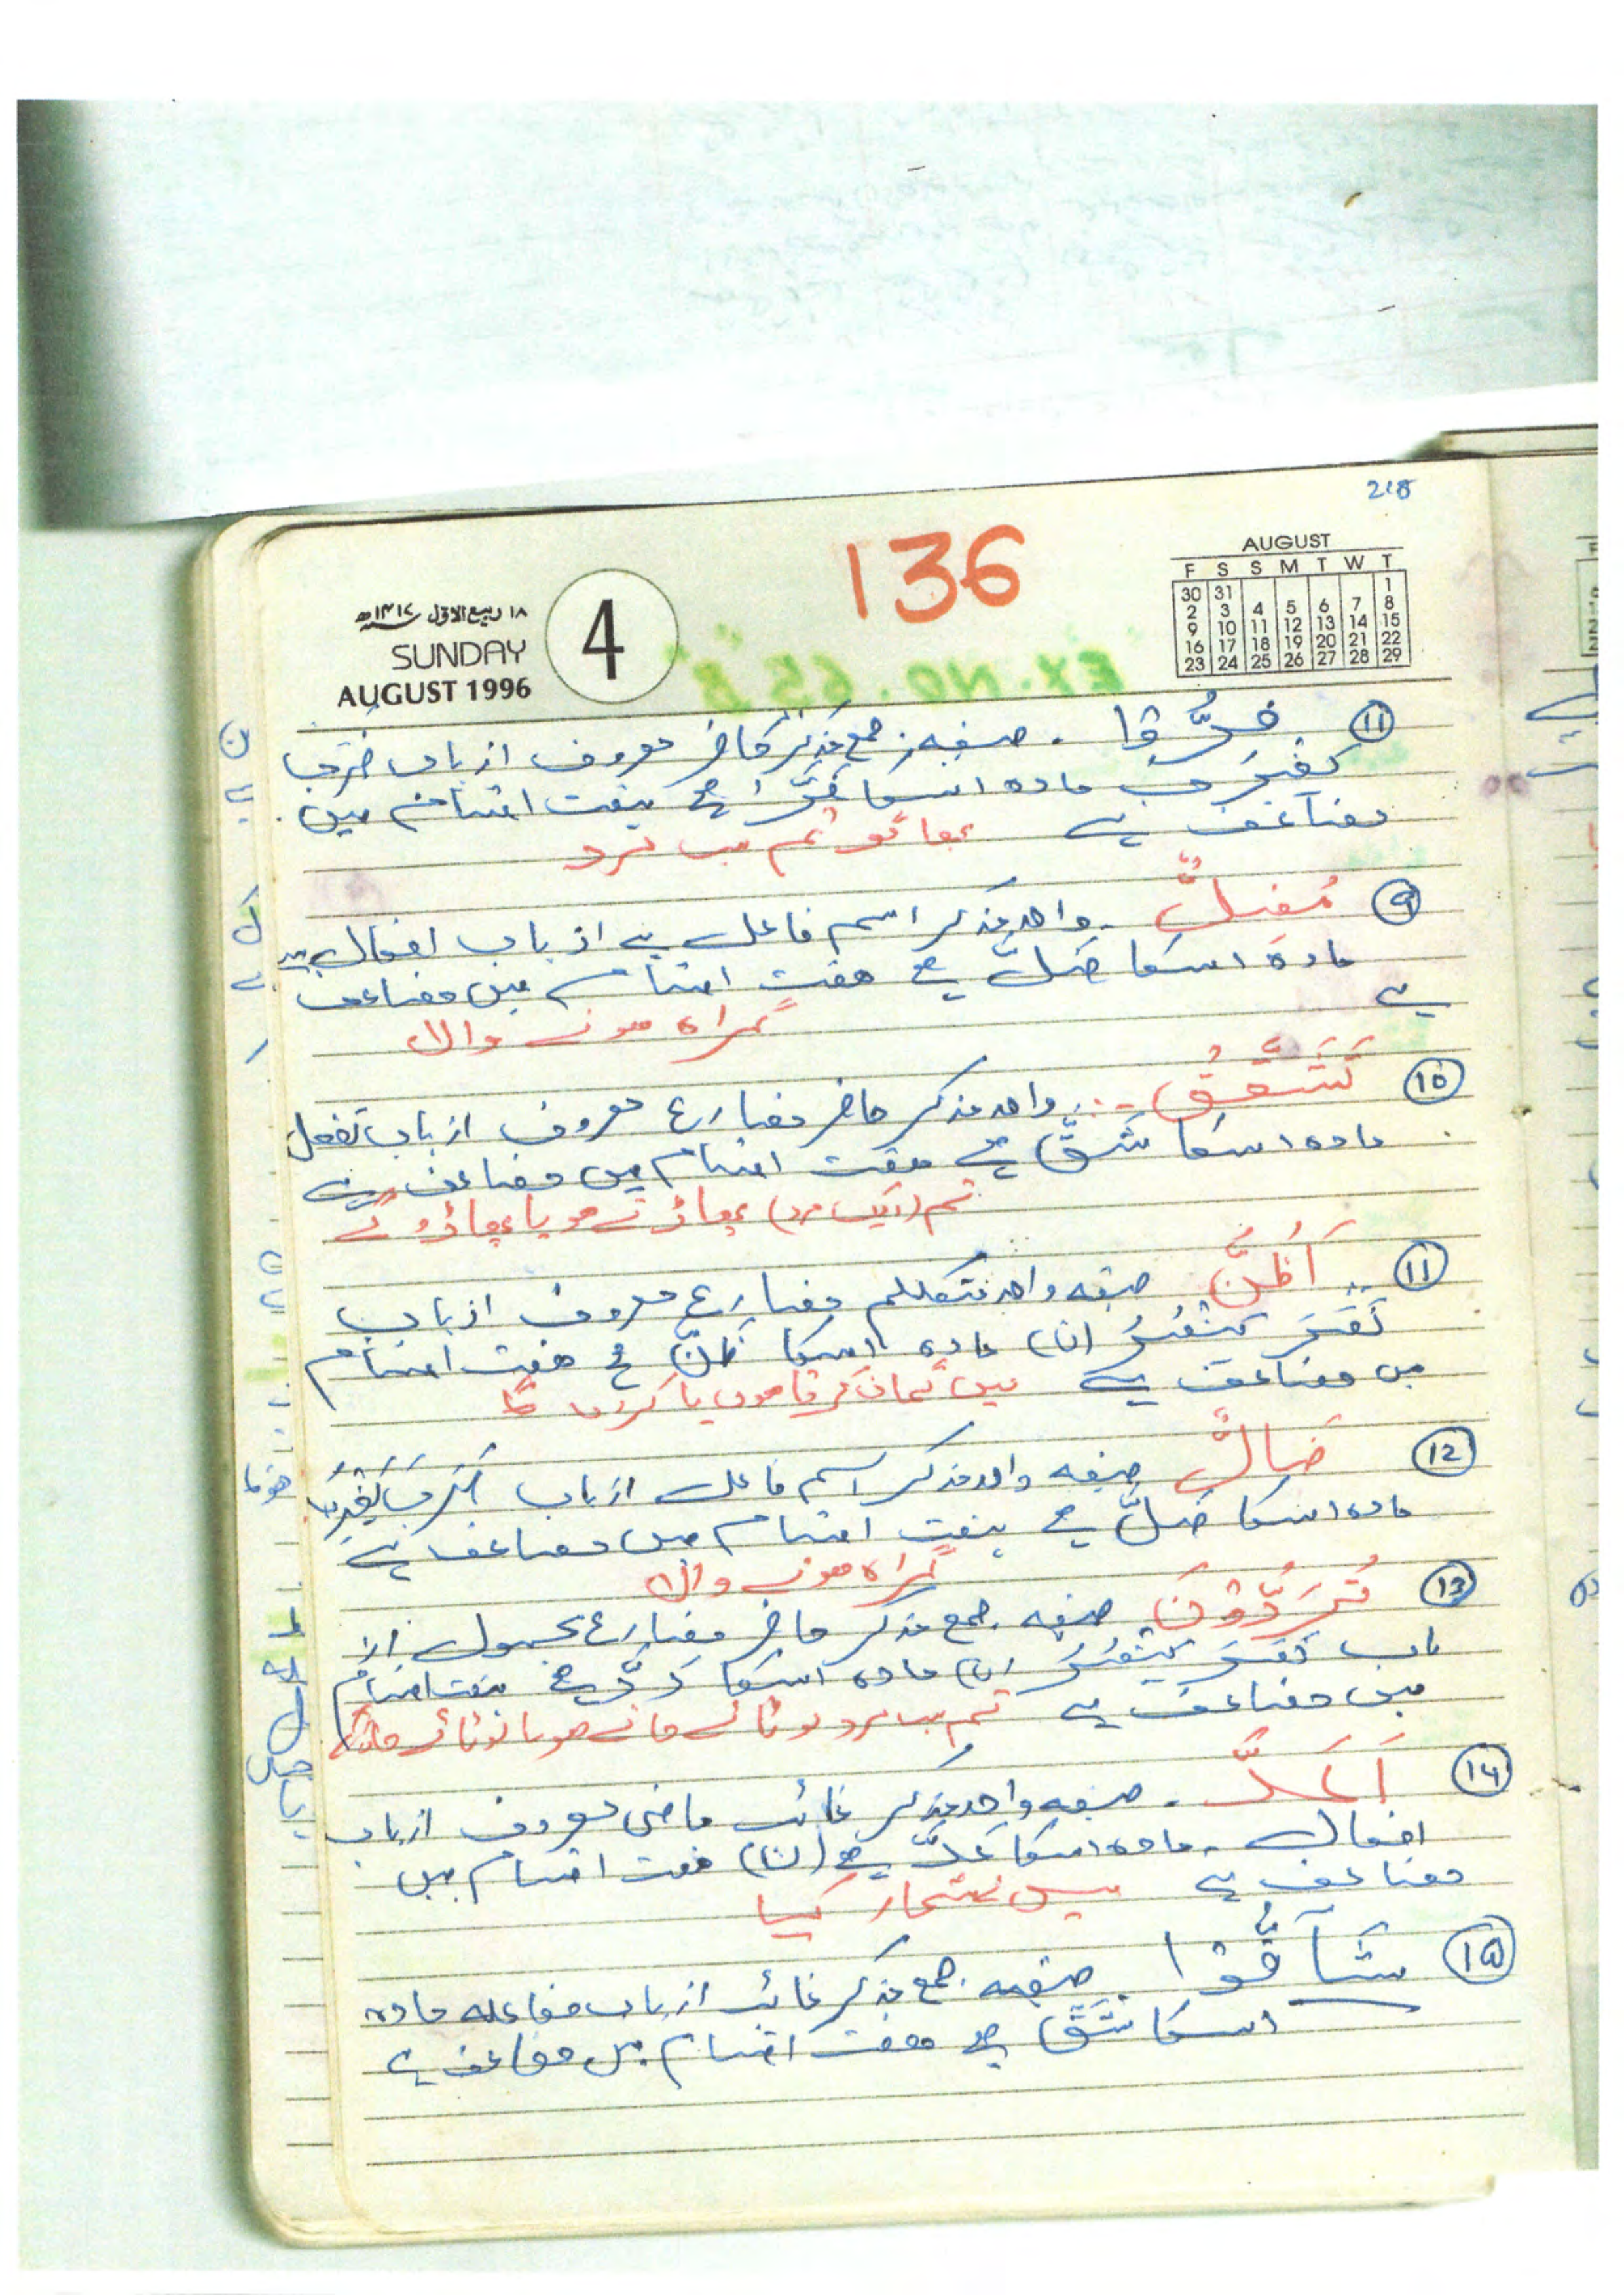 218
136
AUGUST
F S S M T W T
30 31 1
2 3 4 5 6 7 8
9 10 11 12 13 14 15
16 17 18 19 20 21 22
23 24 25 26 27 28 29
۱۸ ربیع الاوّل ۱۴۱۷ھ
SUNDAY
AUGUST 1996
4
⑪ فِرُّوْا ۔ صیغہ جمع مذکر حاضر معروف از باب ضَرَبَ
یَضْرِبُ مادہ اسکا فَرَّ ہے ہفت اقسام میں
مضاعف ہے بھاگو تم سب مرد
⑨ مُضِلٌّ ۔ واحد مذکر اسم فاعل ہے از باب افعال ہے
مادہ اسکا ضَلَّ ہے ہفت اقسام میں مضاعف
ہے گمراہ ہونے والا
⑩ تَشَقَّقُ ۔ واحد مذکر حاضر مضارع معروف از باب تفعل
مادہ اسکا شَقَّ ہے ہفت اقسام میں مضاعف ہے
تم (ایک مرد) پھاڑتے ہو یا پھاڑو گے
⑪ اَظُنُّ صیغہ واحد متکلم مضارع معروف از باب
نَصَرَ یَنْصُرُ (ن) مادہ اسکا ظَنَّ ہے ہفت اقسام
میں مضاعف ہے میں گمان کرتا ہوں یا کروں گا
⑫ ضَالٌّ صیغہ واحد مذکر اسم فاعل از باب ضَرَبَ یَضْرِبُ
مادہ اسکا ضَلَّ ہے ہفت اقسام میں مضاعف ہے
گمراہ ہونے والا
⑬ تُرَدُّوْنَ صیغہ جمع مذکر حاضر مضارع مجہول از
باب نَصَرَ یَنْصُرُ (ن) مادہ اسکا رَدَّ ہے ہفت اقسام
میں مضاعف ہے تم سب مرد لوٹائے جاتے ہو یا لوٹائے جاؤ گے
⑭ اَعَدَّ ۔ صیغہ واحد مذکر غائب ماضی معروف از باب
افعال ۔ مادہ اسکا عَدَّ ہے (ن) ہفت اقسام میں
مضاعف ہے شمار کیا
⑮ شَآقُّوْا ۔ صیغہ جمع مذکر غائب از باب مفاعلہ مادہ
اسکا شَقَّ ہے ہفت اقسام میں مضاعف ہے